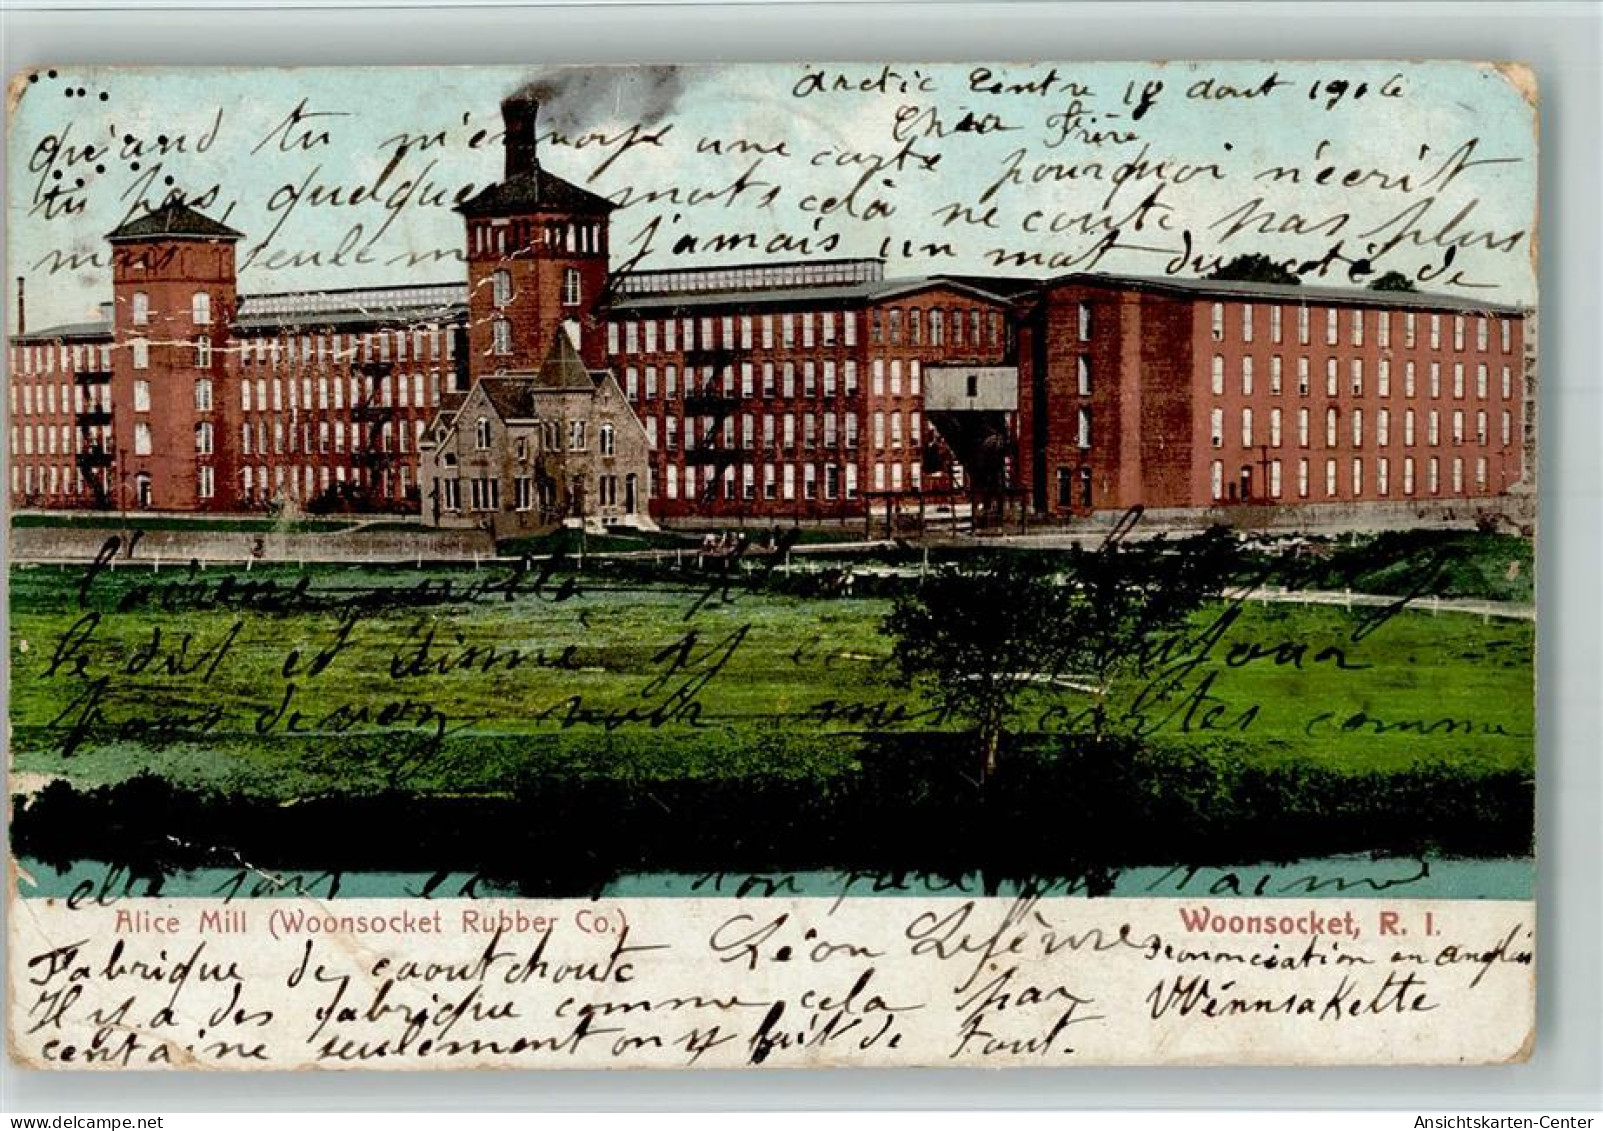 Arctic Centre 18 aout 1906
Cher Frère
quand tu m'envoye une carte pourquoi n'écrit
tu pas, quelque mots celà ne coute pas plus
mais seulement jamais un mat du coté de
l'amene
te dit et toujour
Vous devez voir mes cartes comme
elle sont ton frère qui t'aime
Alice Mill (Woonsocket Rubber Co.)
Woonsocket, R. I.
Léon Lefèvre
Prononciation en anglais
Wénnsakette
Fabrique de caoutchoutc
Il y a des fabrique comme cela par
centaine seulement on y fait de tout.
Ansichtskarten-Center